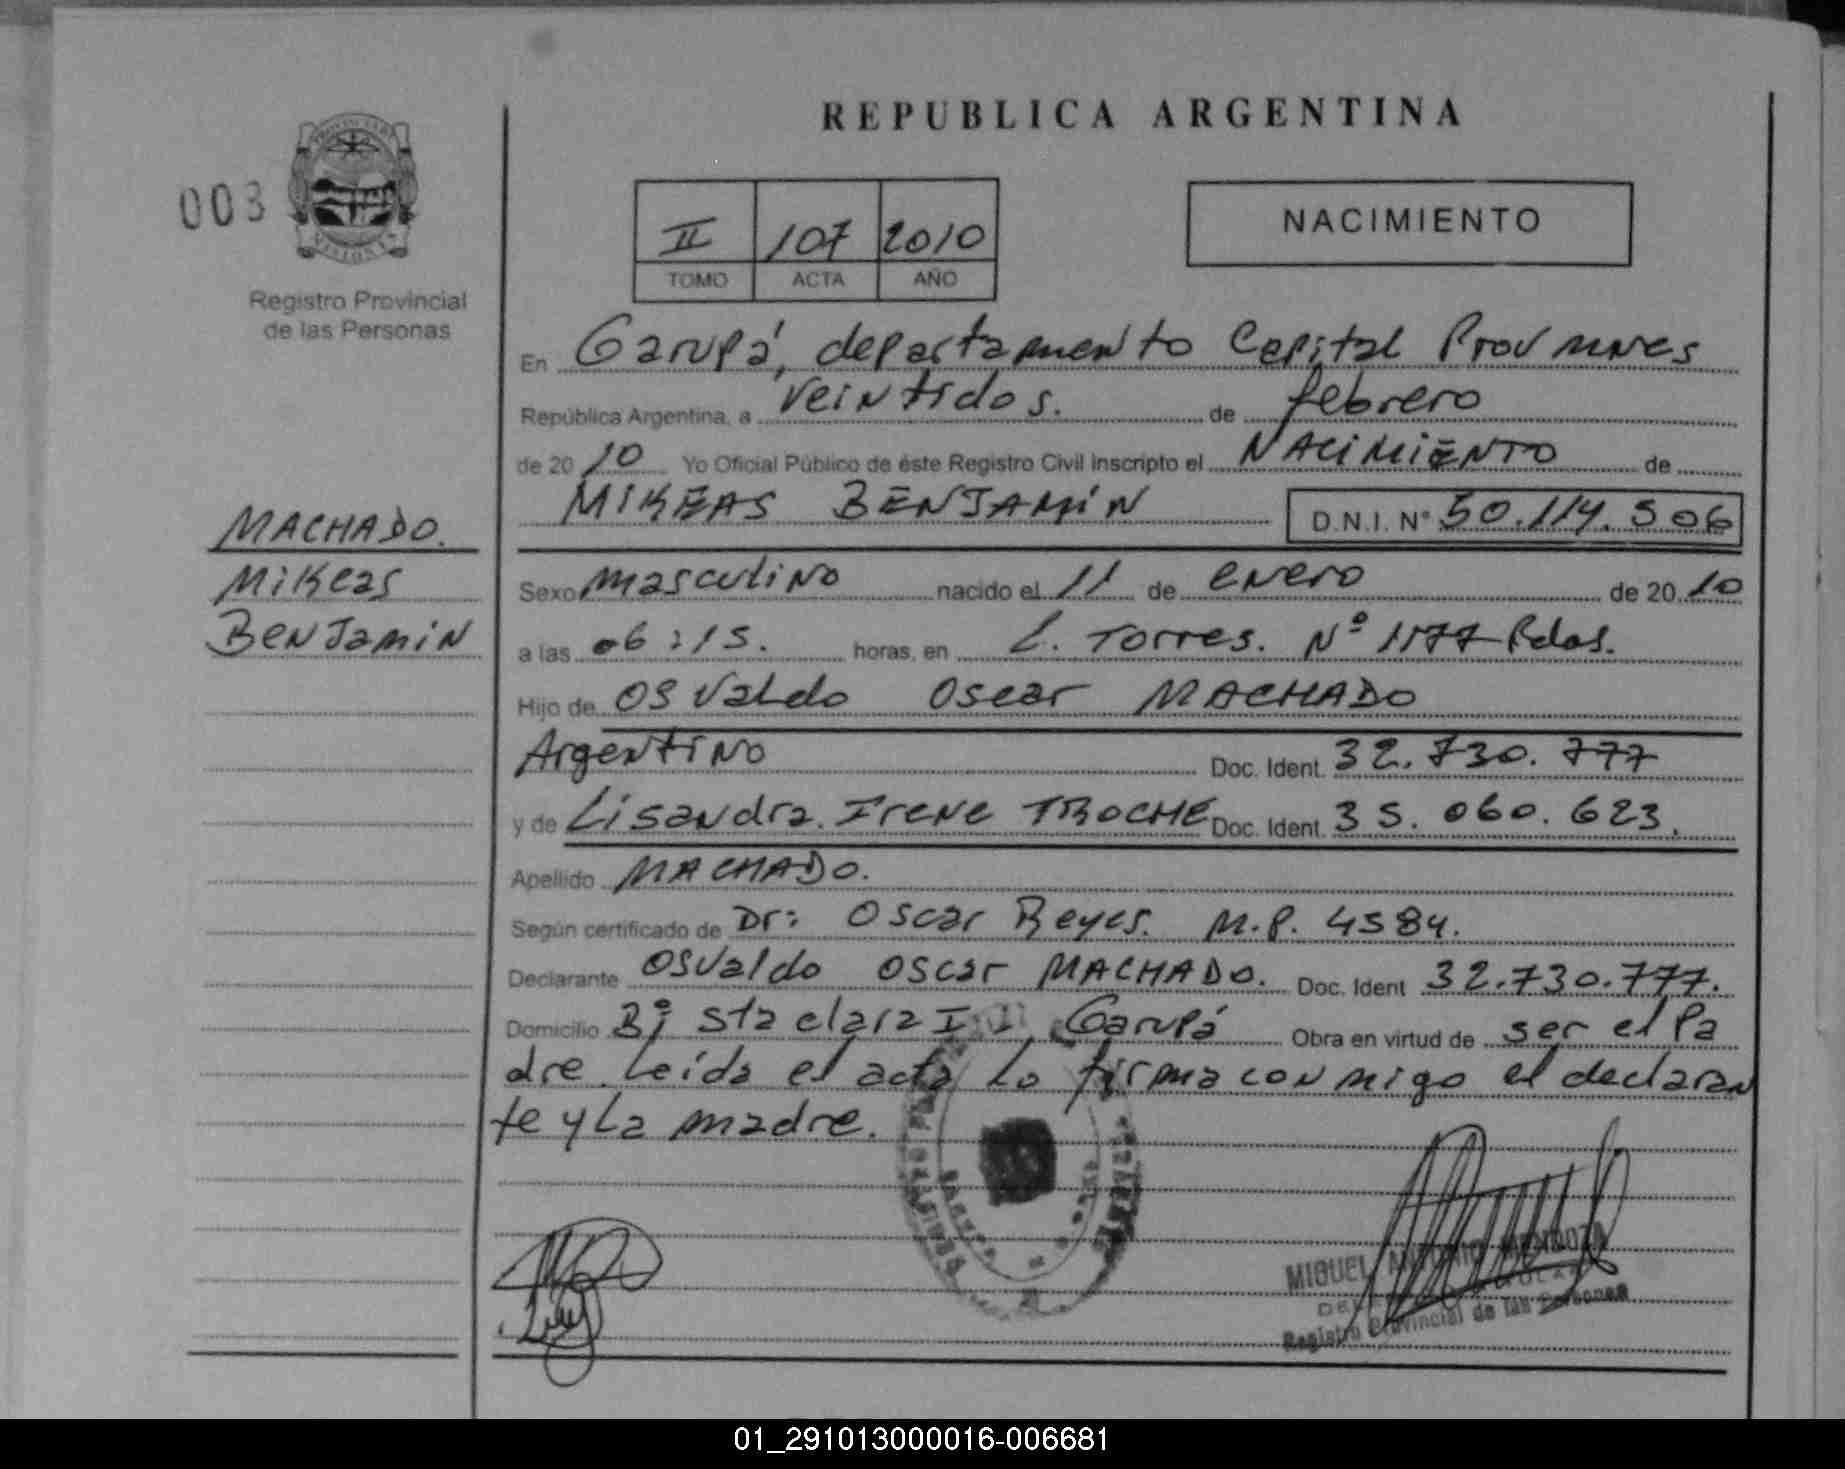 REPUBLICA ARGENTINA
003
PROVINCIA DE
MISIONES
Registro Provincial
de las Personas
II 107 2010
TOMO ACTA AÑO
NACIMIENTO
En Garupá, departamento Capital Prov Mnes
República Argentina, a veintidos. de febrero
de 20 10 Yo Oficial Público de éste Registro Civil Inscripto el NACIMIENTO de
MIKEAS BENJAMÍN D.N.I. N° 50.114.506
MACHADO.
Mikeas
Benjamin
Sexo masculino nacido el 11 de enero de 20 10
a las 06:15. horas, en L. Torres. N° 1177 Pdas.
Hijo de Osvaldo Oscar MACHADO
Argentino Doc. Ident. 32.730.777
y de Lisandra Irene TROCHE Doc. Ident. 35.060.623.
Apellido MACHADO.
Según certificado de Dr: Oscar Reyes. M.P. 4584.
Declarante Osvaldo Oscar MACHADO. Doc. Ident 32.730.777.
Domicilio B° Sta clara II Garupá Obra en virtud de ser el Pa
dre. Leída el acta lo firma conmigo el declaran
te y La madre.
MIGUEL ANTONIO MENDOZA
Registro Provincial de las Personas
01_291013000016-006681